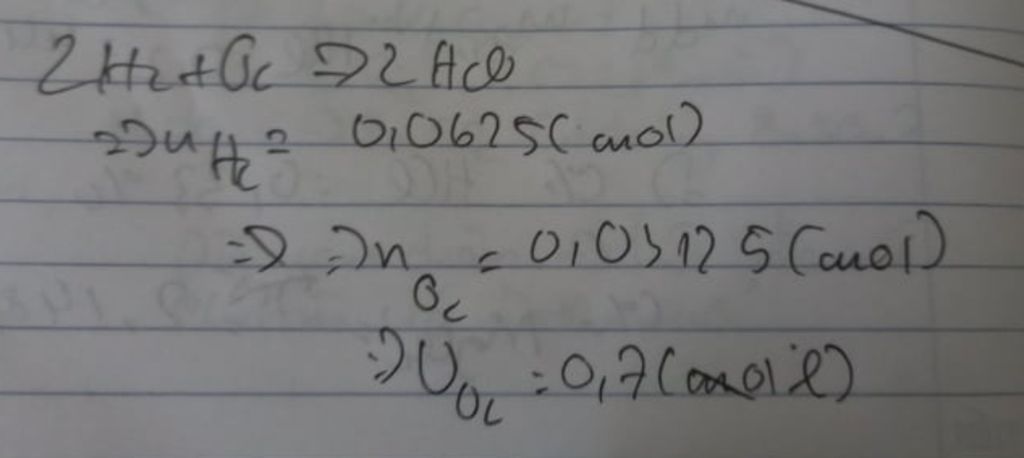 2H₂ + O₂ => 2H₂O
=> n H₂ = 0,0625 (mol)
=> => n O₂ = 0,03125 (mol)
=> V O₂ = 0,7 (l)